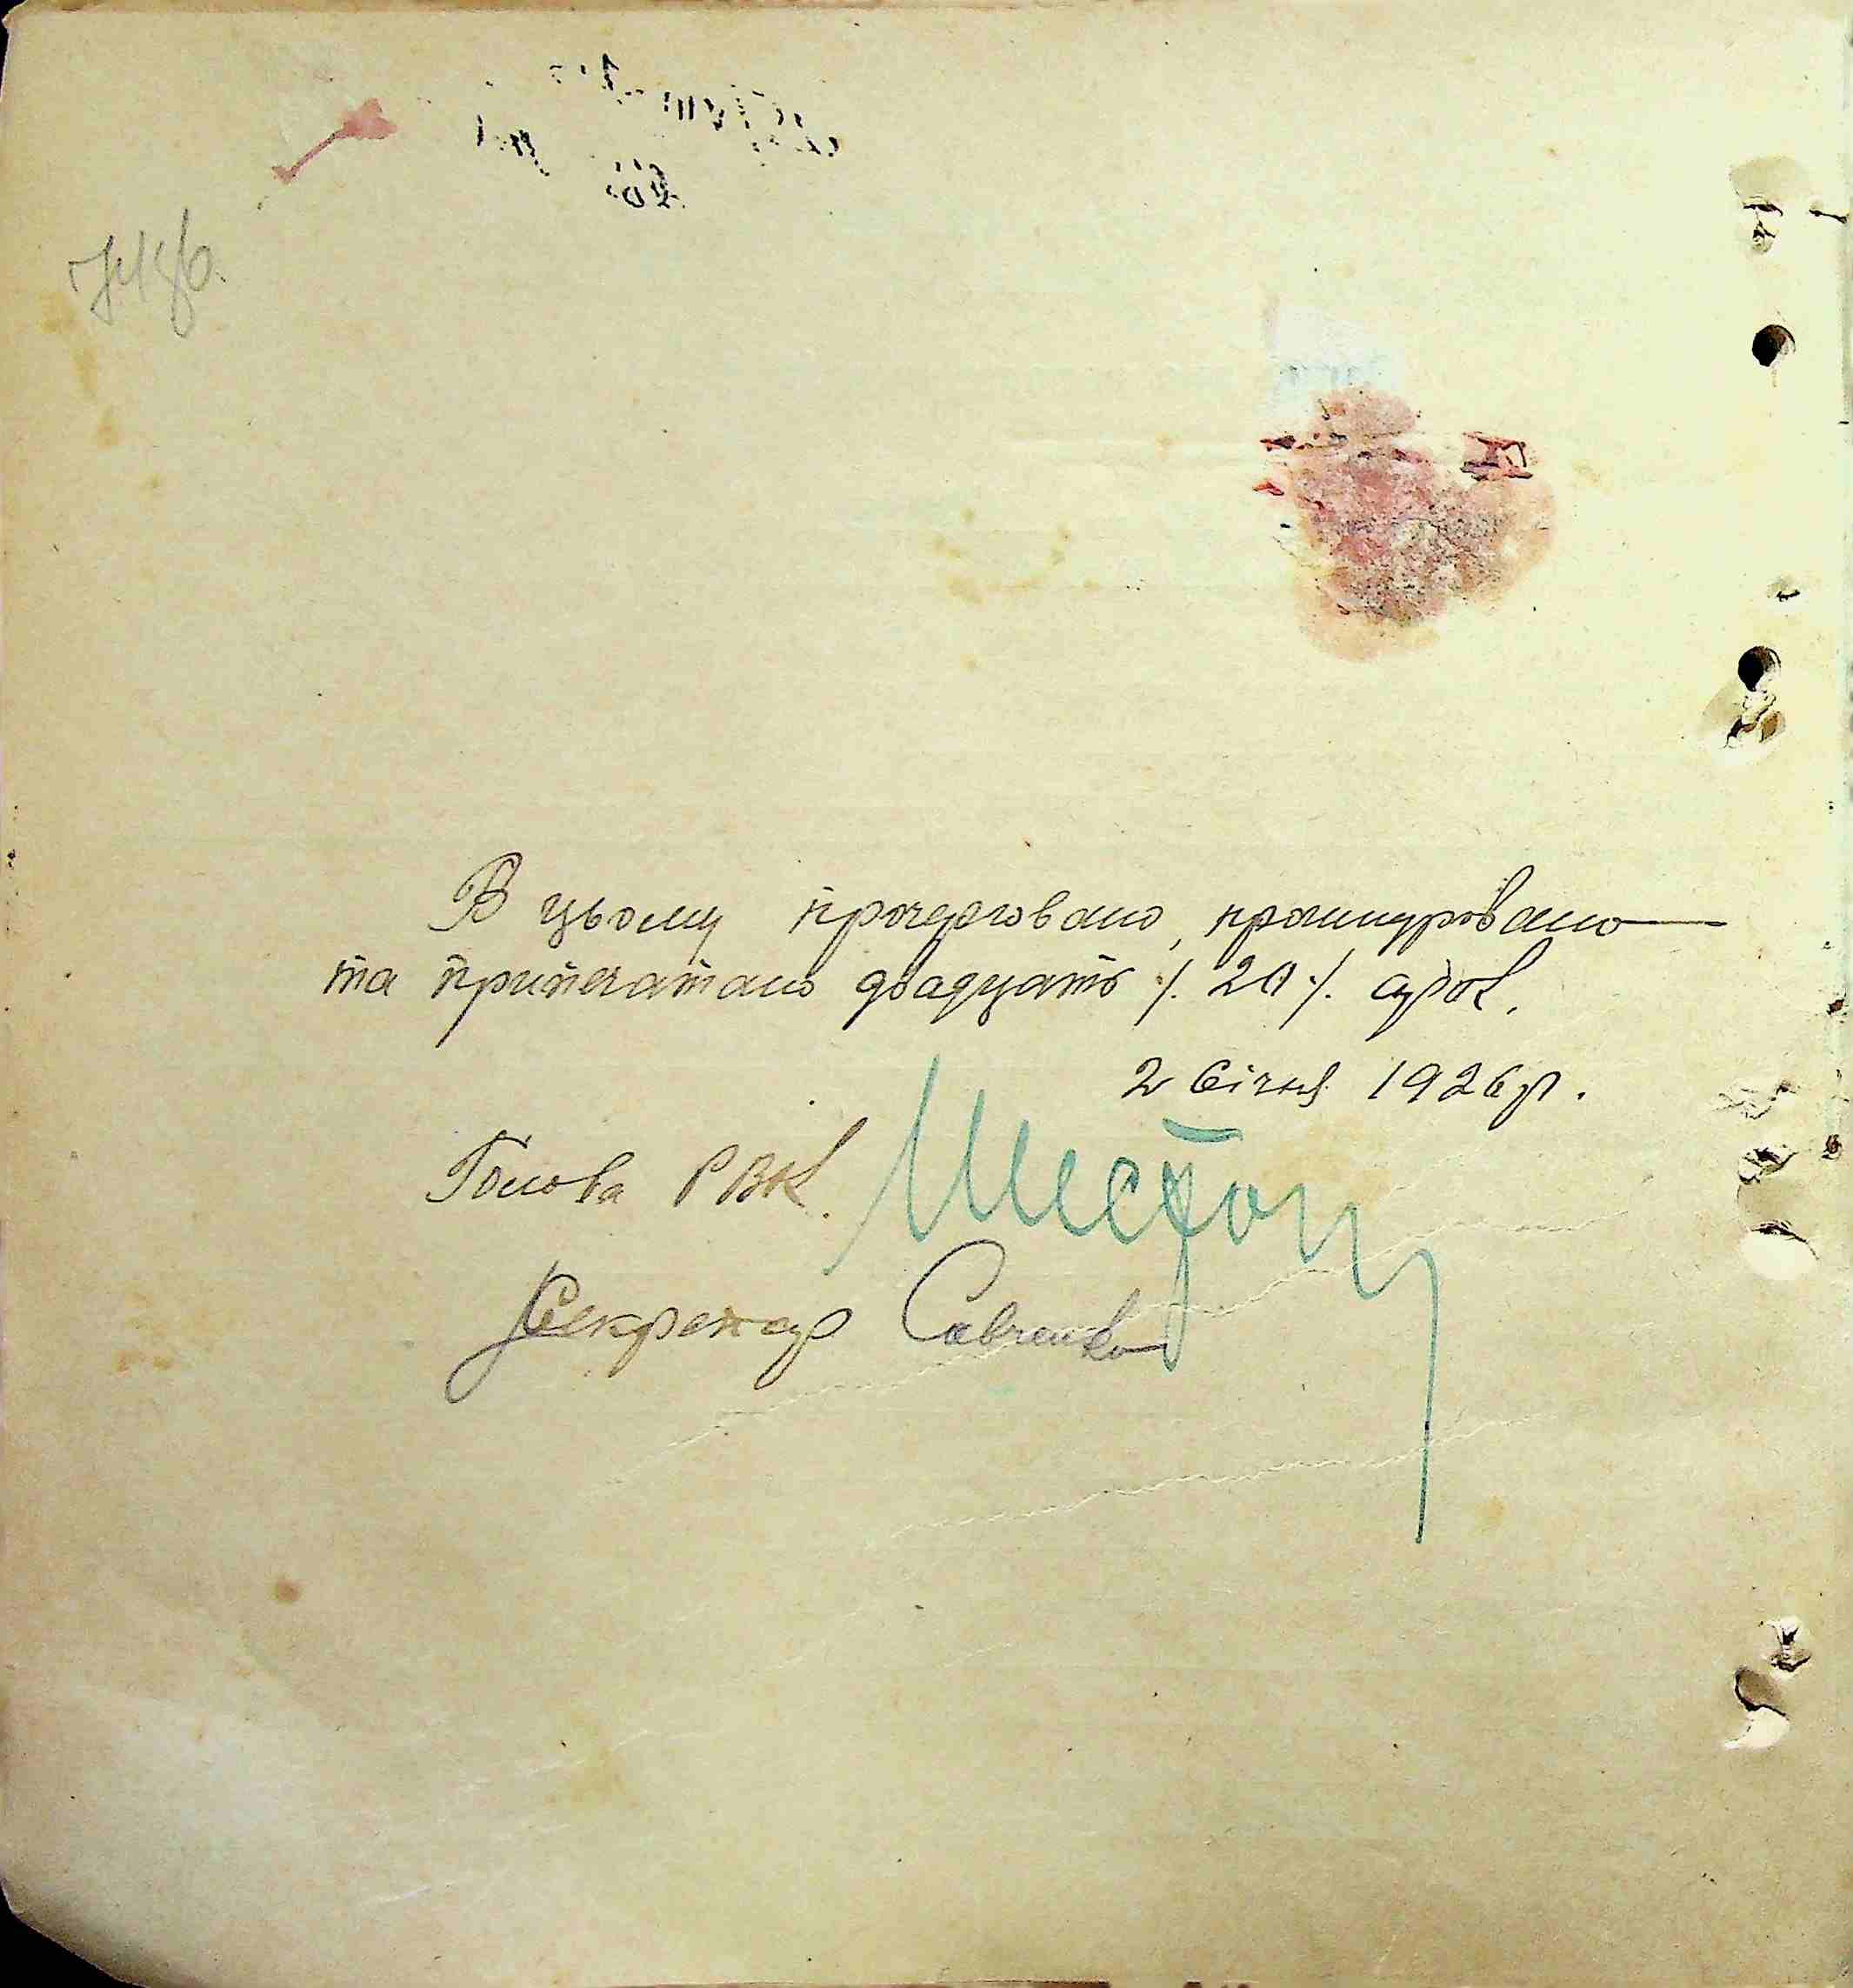 В цьому прочерговано, прошнуровано
та припечатано двадцять /. 20 /. арк.
2 Січня 1926 р.
Голова РВК.
Секретар Савченко